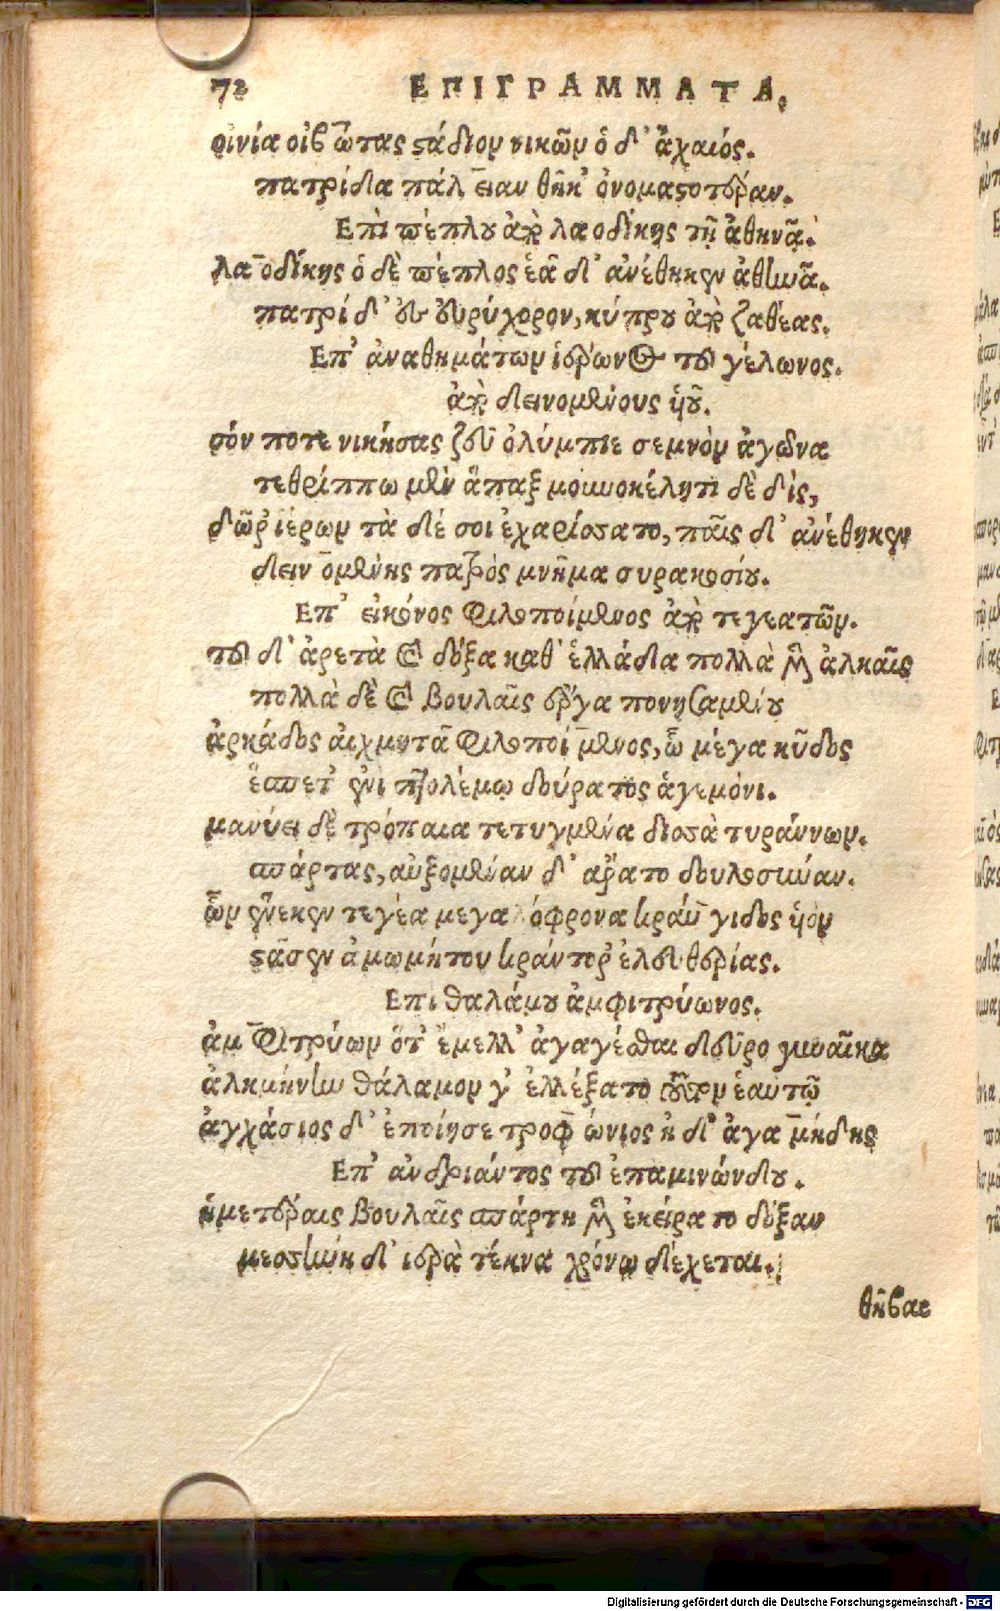 72 ΕΠΙΓΡΑΜΜΑΤΑ.
οἰνία οἰβώτας στάδιον νικῶν ὁ δ' ἀχαιός.
πατρίδα πάλειαν θῆκ' ὀνομαστοτέραν.
Επὶ πέπλου παρὰ λαοδίκης τῇ ἀθηνᾷ.
λαοδίκης ὁ δὲ πέπλος ἑᾷ δ' ἀνέθηκεν ἀθηνᾷ.
πατρίδ' ἐς εὐρύχορον, κύπρου παρὰ ζαθέας.
Επ' ἀναθημάτων ἱέρωνος τοῦ γέλωνος.
παρὰ δεινομένους ὑοῦ.
σόν ποτε νικήσας ζεῦ ὀλύμπιε σεμνὸν ἀγῶνα
τεθρίππω μὲν ἅπαξ μουνοκέλητι δὲ δὶς,
δῶρ ἱέρων τὰ δέ σοι ἐχαρίσσατο, παῖς δ' ἀνέθηκεν
δεινομένης πατρὸς μνῆμα συρακοσίου.
Επ' εἰκόνος φιλοποίμενος παρὰ τεγεατῶν.
τοῦ δ' ἀρετὰ καὶ δόξα καθ' ἑλλάδα πολλὰ μὲν ἀλκαῖς
πολλὰ δὲ καὶ βουλαῖς ἔργα πονησαμένου
ἀρκάδος αἰχμητᾶ φιλοποίμενος, ᾧ μέγα κῦδος
ἕσπετ' ἐνὶ πτολέμῳ δούρατος ἁγεμόνι.
μανύει δὲ τρόπαια τετυγμένα δισσὰ τυράννων.
σπάρτας, αὐξομέναν δ' ἄρατο δουλοσύναν.
ὧν ἕνεκεν τεγέα μεγαλόφρονα κράυγιδος ὑὸν
στᾶσεν ἀμωμήτου κράντορ ἐλευθερίας.
Επι θαλάμου ἀμφιτρύωνος.
ἀμφιτρύων ὅτ' ἔμελλ' ἀγαγέσθαι δεῦρο γυναῖκα
ἀλκμήνην θάλαμον γ' ἐλλέξατο τοῦτον ἑαυτῷ
ἀγχάσιος δ' ἐποίησε τροφώνιος ἠ δ' ἀγαμήδης
Επ' ἀνδριάντος τοῦ ἐπαμινώνδου.
ἡμετέραις βουλαῖς σπάρτη μὲν ἐκείρατο δόξαν
μεσσήνη δ' ιερὰ τέκνα χρόνῳ δέχεται.
θῆβαι